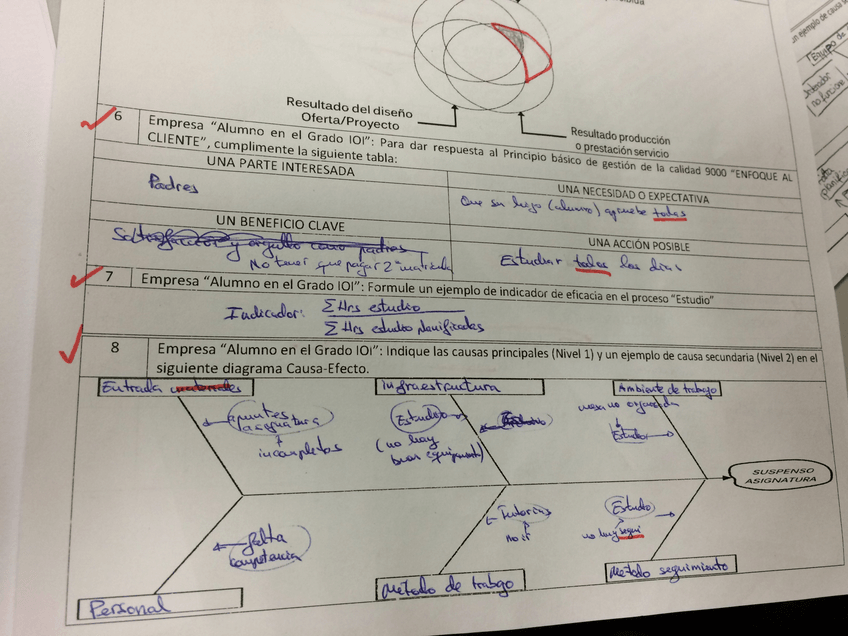 Resultado del diseño
Oferta/Proyecto
Resultado producción
o prestación servicio
6 Empresa "Alumno en el Grado IOI": Para dar respuesta al Principio básico de gestión de la calidad 9000 "ENFOQUE AL
CLIENTE", cumplimente la siguiente tabla:
UNA PARTE INTERESADA
Padres
UNA NECESIDAD O EXPECTATIVA
Que su hijo (alumno) apruebe todas
UN BENEFICIO CLAVE
Satisfacción y orgullo como padres
No tener que pagar 2ª matrícula
UNA ACCIÓN POSIBLE
Estudiar todos los días
7 Empresa "Alumno en el Grado IOI": Formule un ejemplo de indicador de eficacia en el proceso "Estudio"
Indicador: Σ Hrs estudio
Σ Hrs estudio planificadas
8 Empresa "Alumno en el Grado IOI": Indique las causas principales (Nivel 1) y un ejemplo de causa secundaria (Nivel 2) en el
siguiente diagrama Causa-Efecto.
Entrada materiales
Infraestructura
Ambiente de trabajo
apuntes
asignatura
incompletos
Estudio
(no hay
buen equipamiento)
mesa no organizada
Estudio
SUSPENSO
ASIGNATURA
falta
competencia
Tutorías
no ir
Estudio
no hay segui
Personal
Método de trabajo
Método seguimiento